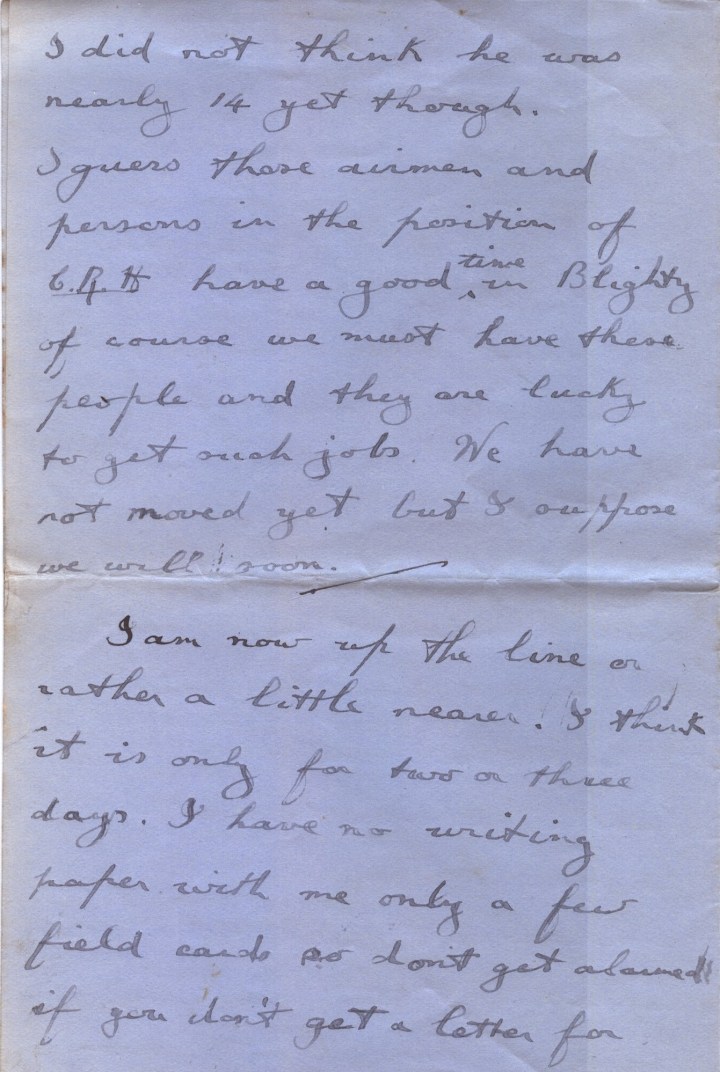 I did not think he was
nearly 14 yet though.
I guess those airmen and
persons in the position of
C.R.H have a good time in Blighty
of course we must have these
people and they are lucky
to get such jobs. We have
not moved yet but I suppose
we will soon.
I am now up the line or
rather a little nearer. I think
it is only for two or three
days. I have no writing
paper with me only a few
field cards so don't get alarmed
if you don't get a letter for